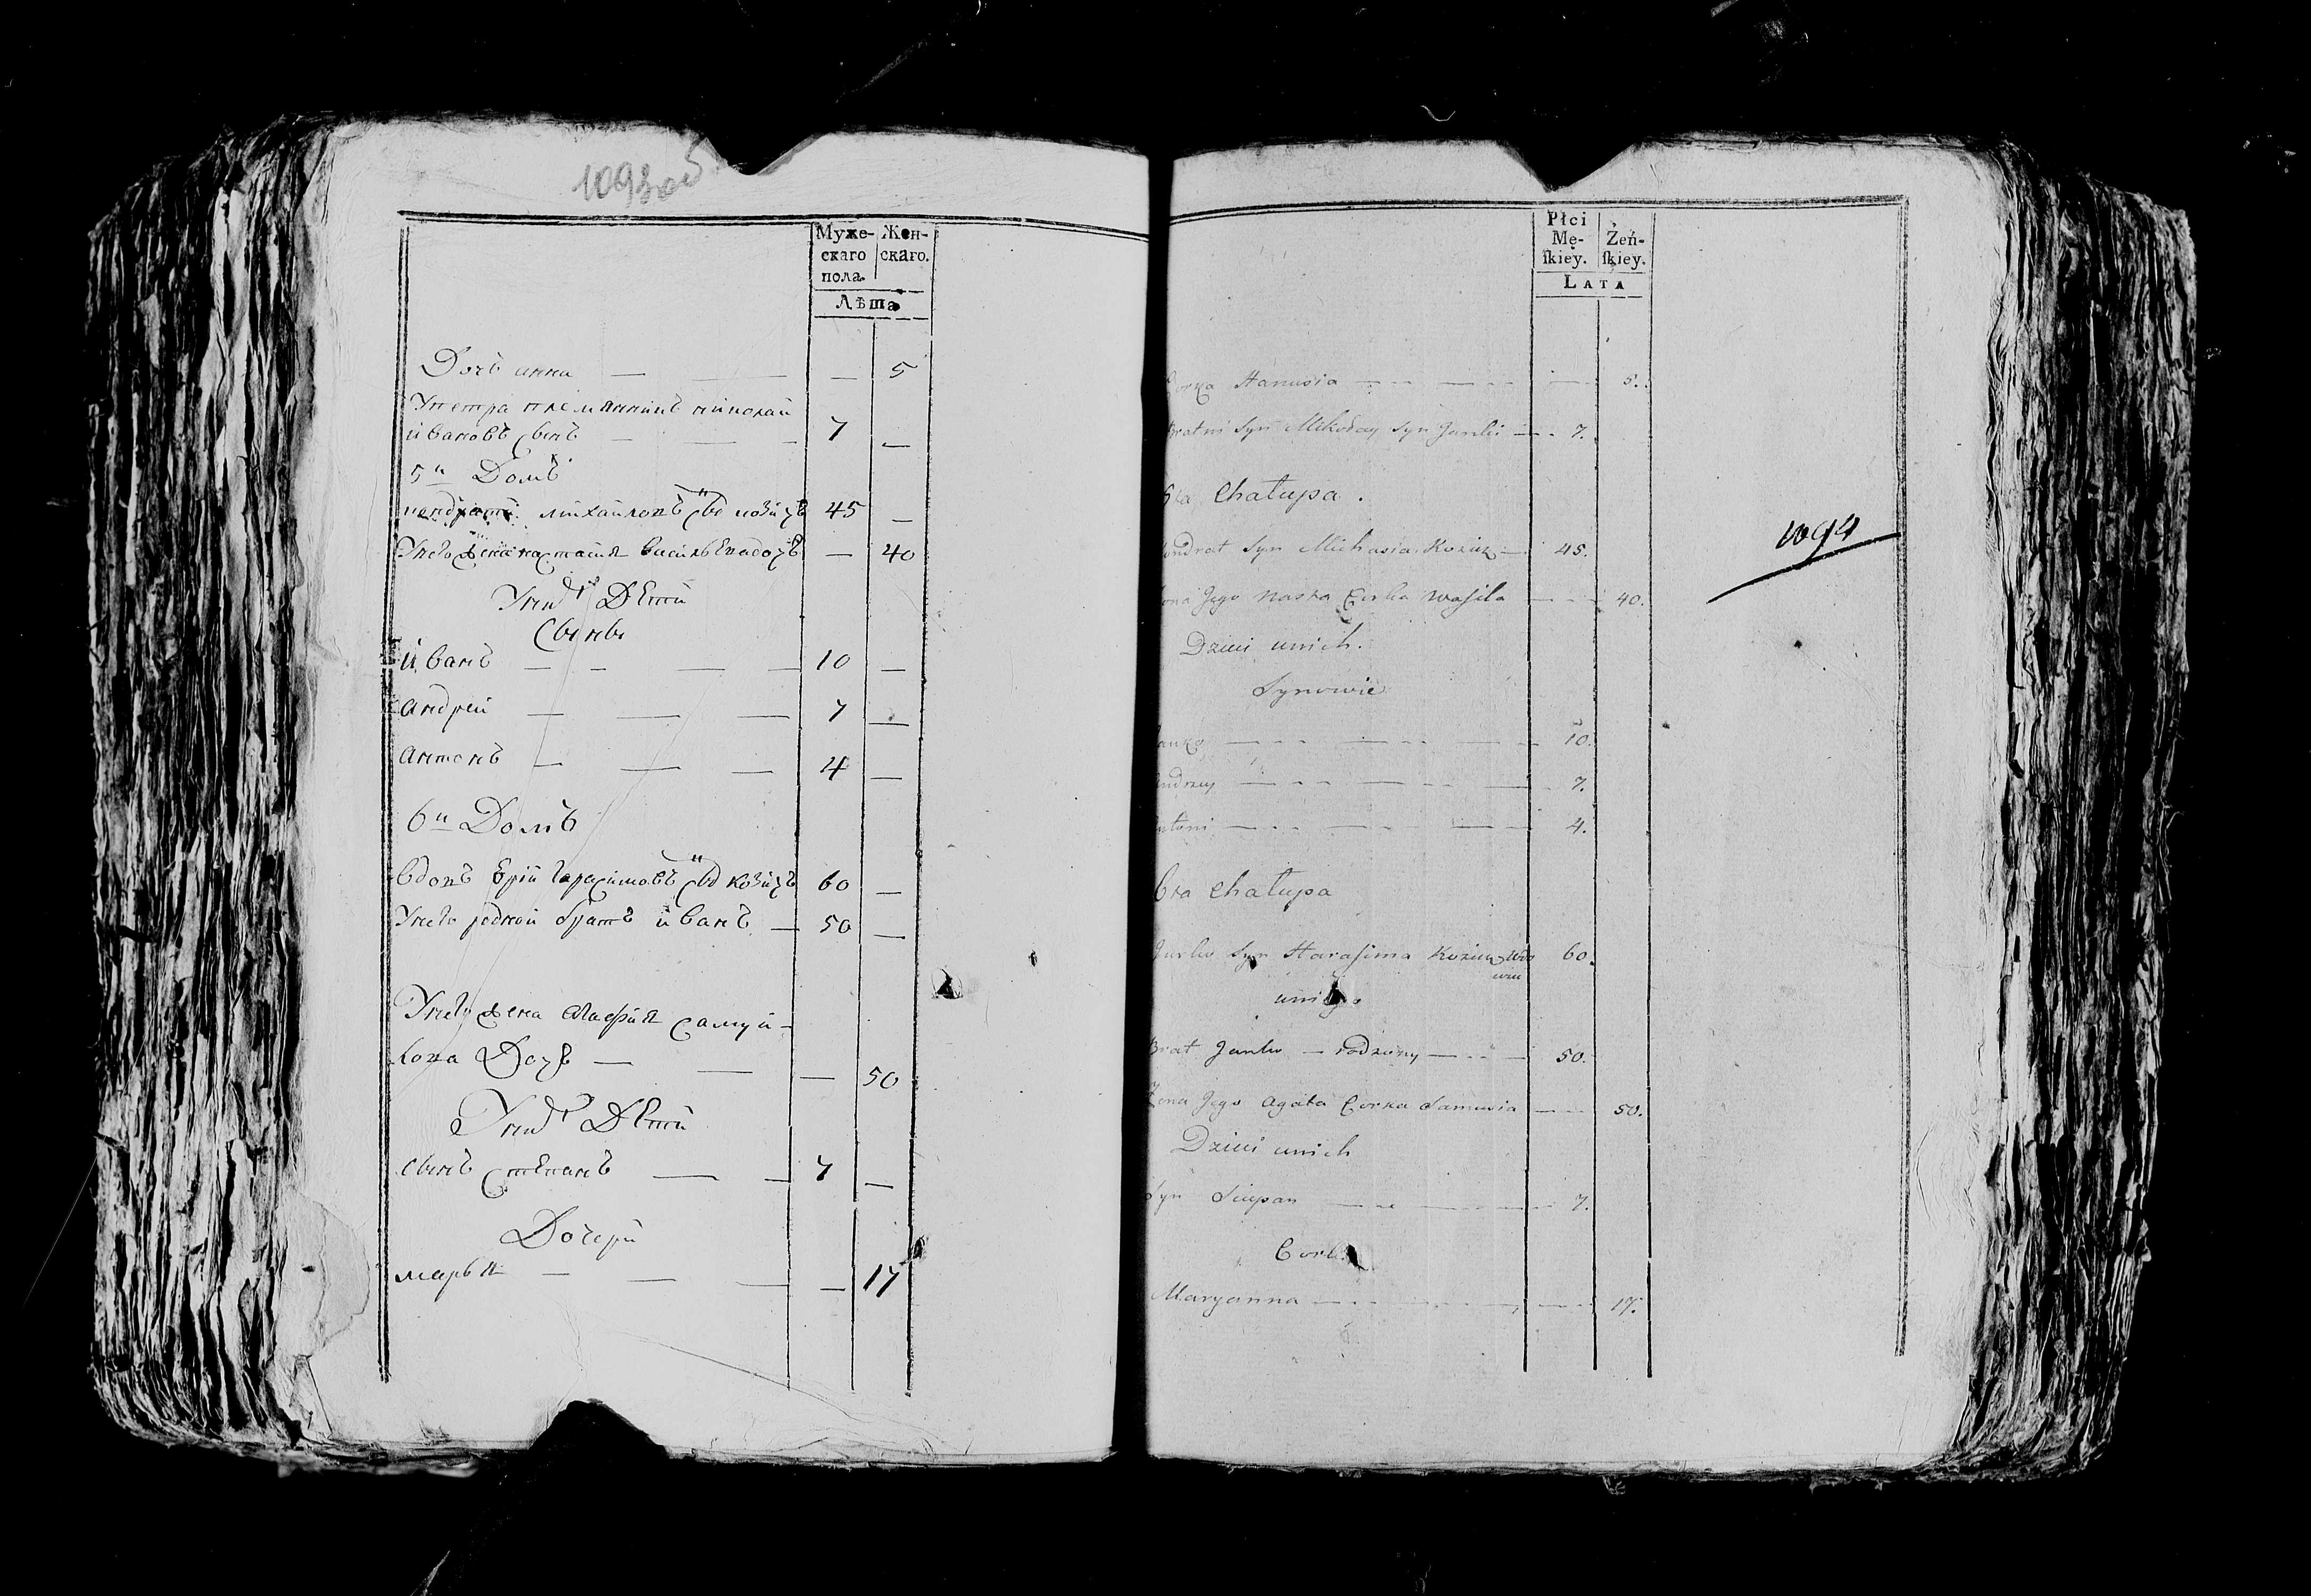 1093об
Муже-
скаго
пола.
Жен-
скаго.
Лѣта
Дочь анна — — — 5
У петра племянникъ николай
ивановъ сынъ — — 7 —
5й Домъ
михайловъ 45 —
У него жена настасия васильева дочь — 40
У них Дети
Сыны
иванъ — — — 10 —
андрей — — — 7 —
антонъ — — — 4 —
6й Домъ
вдовъ юрий гарасимовъ козичъ 60 —
У него родной братъ иванъ — 50 —
У него жена агафия самуй-
лова Дочь — — — 50
У них Дети
сынъ степанъ — — 7 —
Дочери
марья — — — — 17
Płci
Mę-
ſkiey.
Żeń-
ſkiey.
LATA
Corka Hanusia — — — 5.
Bratni Syn Mikołay Syn Janki — 7.
5ta Chałupa.
Kondrat Syn Michasia 45.
Żona Jego Nasta Corka Wasila — 40.
Dzieci unich.
Synowie
Janko — — — 10.
Andrzey — — — 7.
Antoni — — — 4.
6ta Chałupa
Jurko Syn Harasima 60.
Brat Janko — rodzony — 50.
Żona Jego Agata Corka Samusia — 50.
Dzieci unich
Syn Sciepan — — 7.
Maryanna — — — 17.
1094